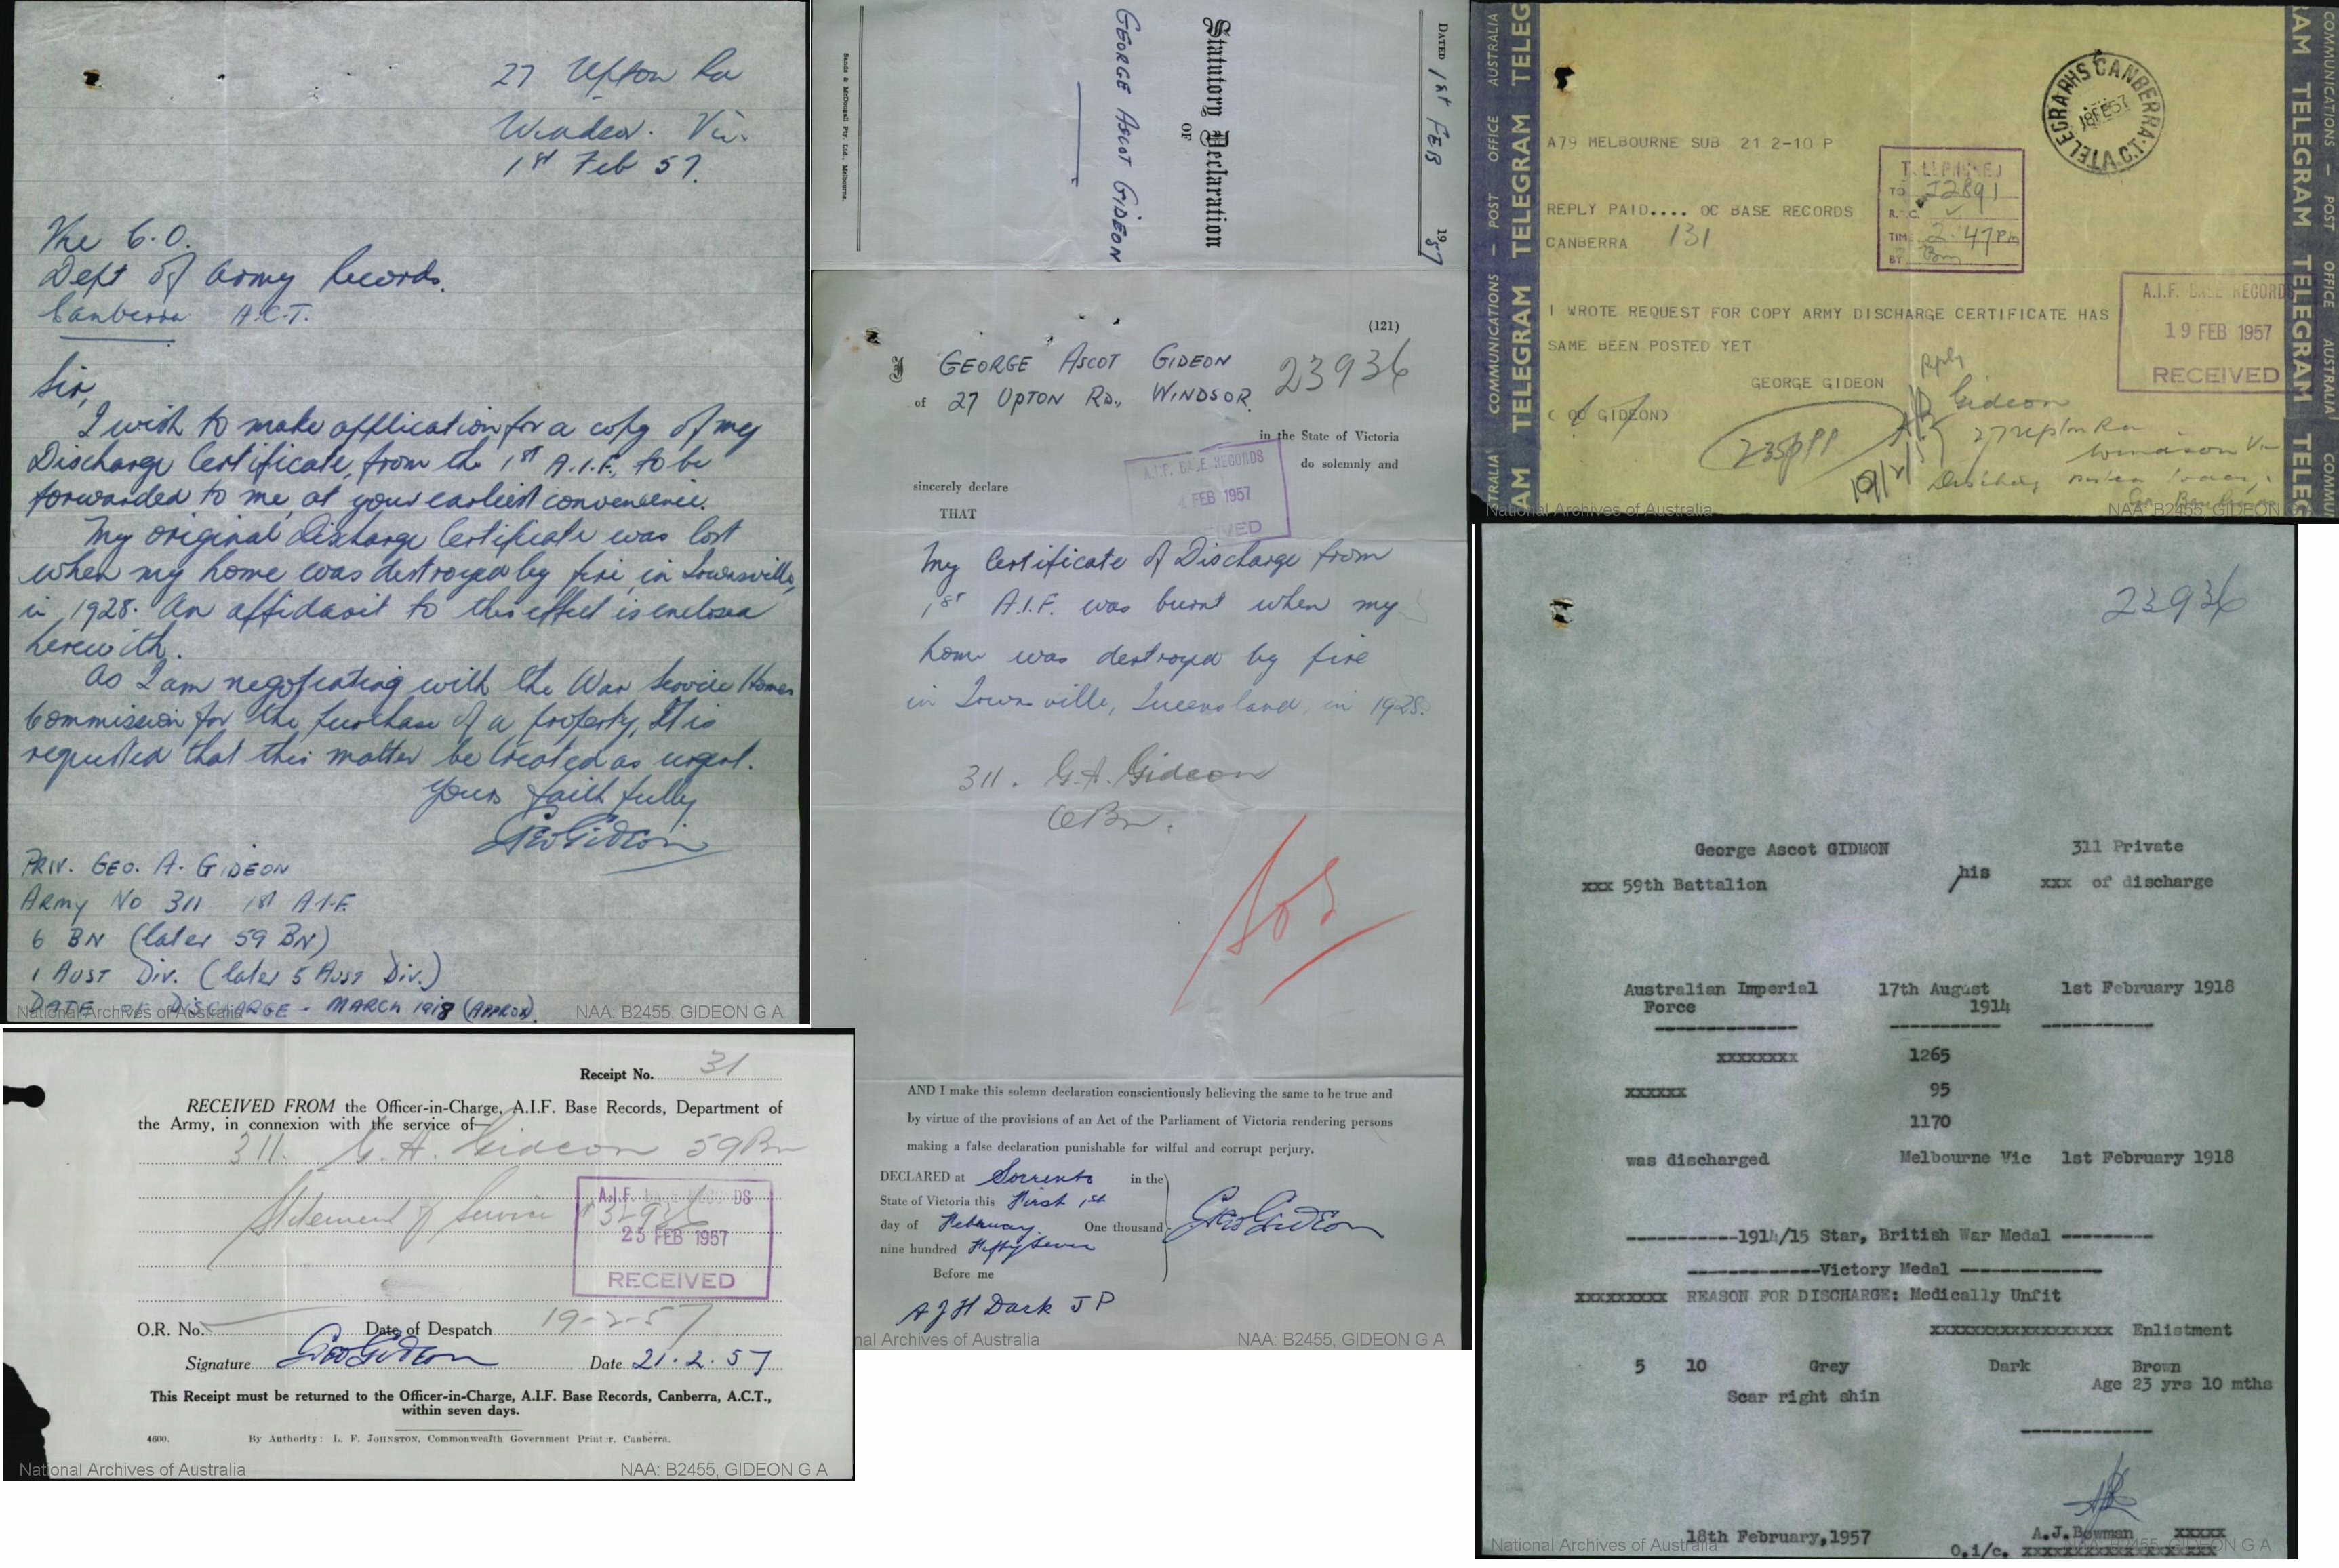 27 Upton Rd
Windsor. Vic.
1st Feb 57.
The C.O.
Dept of Army Records.
Canberra A.C.T.
Sir,
I wish to make application for a copy of my
Discharge Certificate, from the 1st A.I.F., to be
forwarded to me, at your earliest convenience.
My original Discharge Certificate was lost
when my home was destroyed by fire, in Townsville,
in 1928. An affidavit to this effect is enclosed
herewith.
As I am negotiating with the War Service Homes
Commission for the purchase of a property, it is
requested that this matter be treated as urgent.
Yours faithfully
Geo Gideon
PRIV. GEO. A. GIDEON
ARMY NO 311 1st A.I.F.
6 BN (later 59 BN)
1 AUST DIV. (later 5 AUST DIV.)
DATE OF DISCHARGE - MARCH 1918 (APPROX).
National Archives of Australia NAA: B2455, GIDEON G A
DATED 1st FEB 1957
Statutory Declaration
OF
GEORGE ASCOT GIDEON
Sands & McDougall Pty. Ltd., Melbourne.
(121)
I GEORGE ASCOT GIDEON 23936
of 27 UPTON RD., WINDSOR
in the State of Victoria
do solemnly and
sincerely declare
THAT
A.I.F. BASE RECORDS
FEB 1957
My Certificate of Discharge from
1st A.I.F. was burnt when my
home was destroyed by fire
in Townsville, Queensland, in 1928.
311. G.A. Gideon
6 Bn.
SOS
AND I make this solemn declaration conscientiously believing the same to be true and
by virtue of the provisions of an Act of the Parliament of Victoria rendering persons
making a false declaration punishable for wilful and corrupt perjury.
DECLARED at Sorrento in the
State of Victoria this First 1st
day of February One thousand
nine hundred Fifty Seven
Geo Gideon
Before me
A J H Dark J P
nal Archives of Australia NAA: B2455, GIDEON G A
COMMUNICATIONS — POST OFFICE AUSTRALIA
TELEGRAM TELEGRAM TELEG
TELEGRAPHS CANBERRA A.C.T.
18 FE 57
A79 MELBOURNE SUB 21 2-10 P
TELEPHONED
TO J2891
TIME 2.47 Pm
BY
REPLY PAID.... OC BASE RECORDS
CANBERRA 131
A.I.F. BASE RECORDS
19 FEB 1957
RECEIVED
I WROTE REQUEST FOR COPY ARMY DISCHARGE CERTIFICATE HAS
SAME BEEN POSTED YET
GEORGE GIDEON
( OO GIDEON)
Reply
Gideon
27 Upton Rd
Windsor Vic
National Archives of Australia NAA: B2455, GIDEON
23936
George Ascot GIDEON 311 Private
xxx 59th Battalion his xxx of discharge
Australian Imperial 17th August 1st February 1918
Force 1914
xxxxxxxx 1265
xxxxxx 95
1170
was discharged Melbourne Vic 1st February 1918
-----------1914/15 Star, British War Medal ---------
-------------Victory Medal --------------
xxxxxxxxx REASON FOR DISCHARGE: Medically Unfit
xxxxxxxxxxxxxxxxxx Enlistment
5 10 Grey Dark Brown
Age 23 yrs 10 mths
Scar right shin
18th February,1957 A.J.Bowman xxxxx
O.i/c. xxxxxxxxxxxxxxxxxxxx
National Archives of Australia NAA: B2455, GIDEON G A
Receipt No. 31
RECEIVED FROM the Officer-in-Charge, A.I.F. Base Records, Department of
the Army, in connexion with the service of—
311. G. A. Gideon 59 Bn
Statement of Service
A.I.F. BASE RECORDS
23 FEB 1957
RECEIVED
O.R. No. Date of Despatch 19-2-57
Signature Geo Gideon Date 21.2.57
This Receipt must be returned to the Officer-in-Charge, A.I.F. Base Records, Canberra, A.C.T.,
within seven days.
4600. By Authority: L. F. JOHNSTON, Commonwealth Government Printer, Canberra.
National Archives of Australia NAA: B2455, GIDEON G A